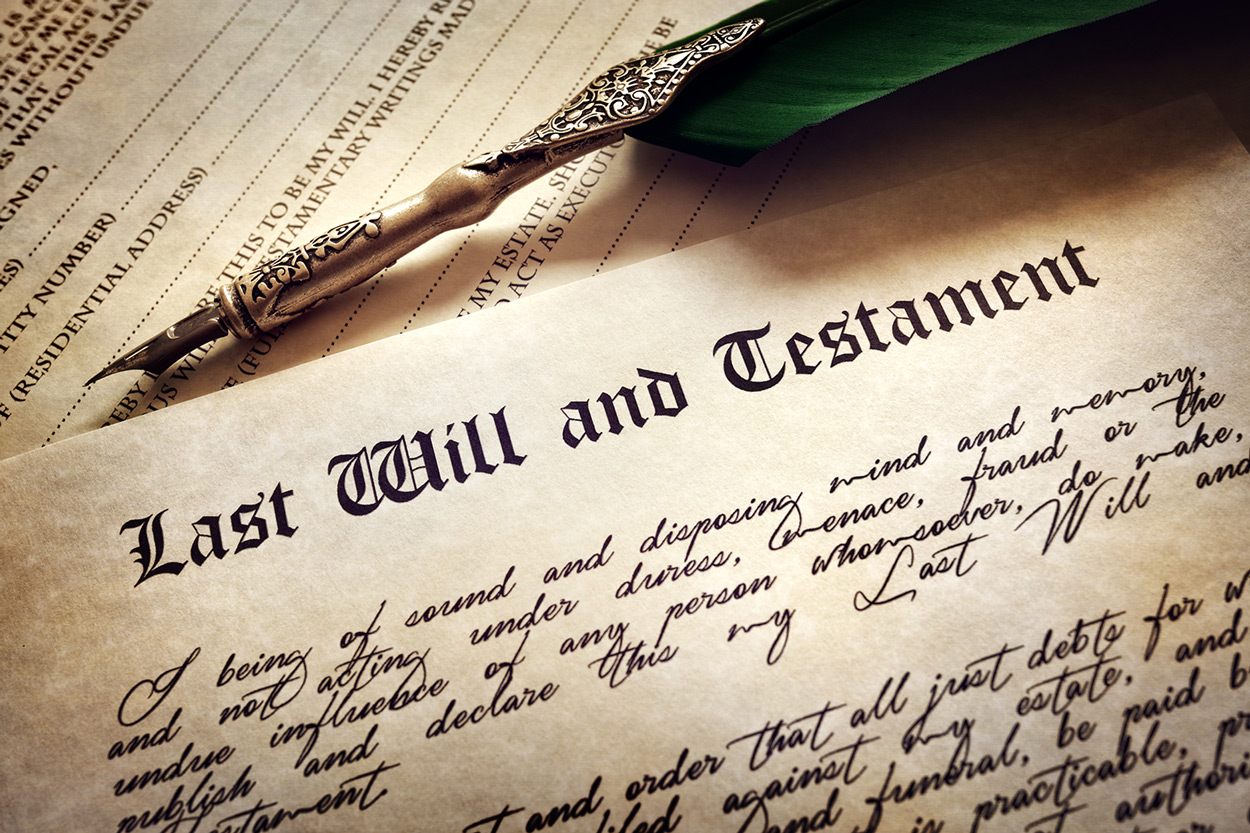 IS A
CAN
DE BY ME
F LEGAL AGE
THAT THIS
S WITHOUT UNDUE
GNED,
ES)
TITY NUMBER)
F (RESIDENTIAL ADDRESS)
THIS TO BE MY WILL. I HEREBY
TESTAMENTARY WRITINGS MADE
EREBY
OUS WILL
OF (FU
MY ESTATE, SHO
TO ACT AS EXECUT
BE
Last Will and Testament
I being of sound and disposing mind and memory,
and not acting under duress, menace, fraud or the
undue influence of any person whomsoever, do make,
publish and declare this my Last Will and
Testament.
and order that all just debts for
against my estate, and
and funeral, be paid
is practicable,
authori